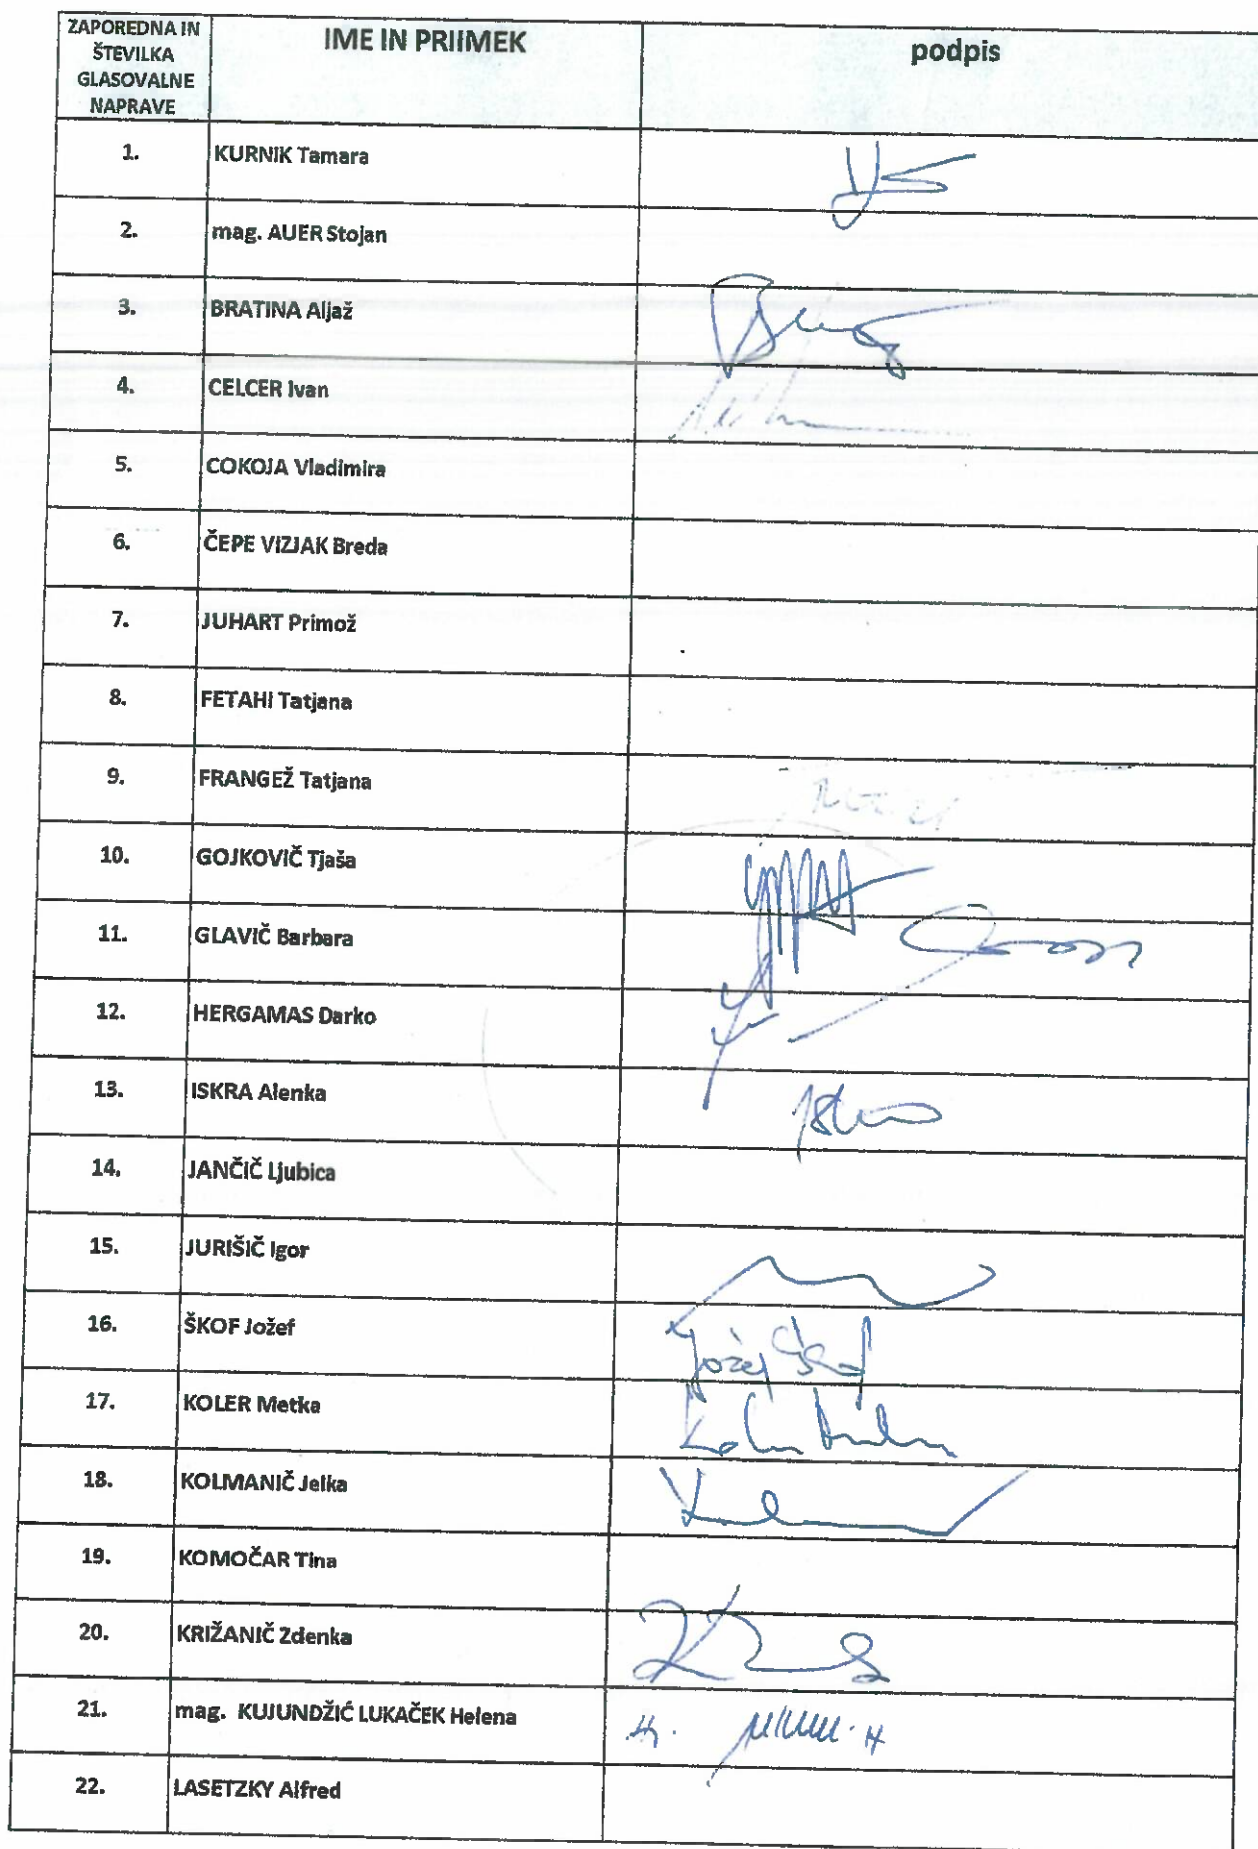 ZAPOREDNA IN
ŠTEVILKA
GLASOVALNE
NAPRAVE
IME IN PRIIMEK
podpis
1. KURNIK Tamara
2. mag. AUER Stojan
3. BRATINA Aljaž
4. CELCER Ivan
5. COKOJA Vladimira
6. ČEPE VIZJAK Breda
7. JUHART Primož
8. FETAHI Tatjana
9. FRANGEŽ Tatjana
10. GOJKOVIČ Tjaša
11. GLAVIČ Barbara
12. HERGAMAS Darko
13. ISKRA Alenka
14. JANČIČ Ljubica
15. JURIŠIČ Igor
16. ŠKOF Jožef Jožef Škof
17. KOLER Metka
18. KOLMANIČ Jelka
19. KOMOČAR Tina
20. KRIŽANIČ Zdenka
21. mag. KUJUNDŽIĆ LUKAČEK Helena
22. LASETZKY Alfred